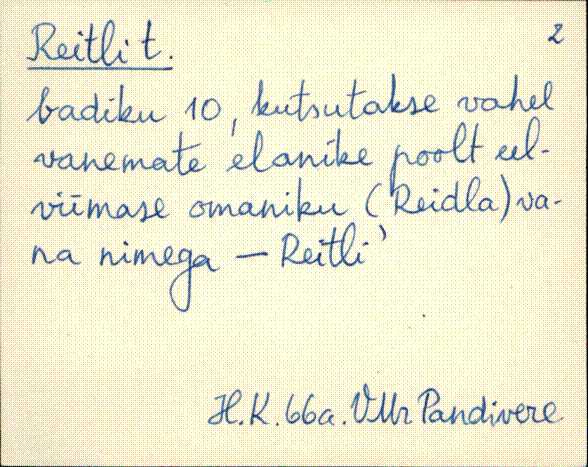 2
Reitli t.
badiku 10, kutsutakse vahel
vanemate elanike poolt eel-
viimase omaniku (Reidla) va-
na nimega — Reitli'
H.K. 66a. VMr Pandivere